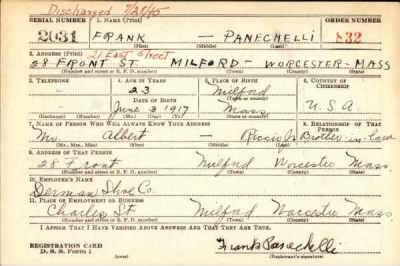 Discharged 7/25/45
SERIAL NUMBER 1. NAME (Print) ORDER NUMBER
2031 FRANK — PANECHELLI 832
(First) (Middle) (Last)
2. ADDRESS (Print) 21 East Street
28 FRONT ST. MILFORD - WORCESTER - MASS
(Number and street or R. F. D. number) (Town) (County) (State)
3. TELEPHONE 4. AGE IN YEARS 5. PLACE OF BIRTH 6. COUNTRY OF CITIZENSHIP
23 Milford
DATE OF BIRTH (Town or county)
June 3 1917 Mass U.S.A.
(Exchange) (No.) (Mo.) (Day) (Yr.) (State or country)
7. NAME OF PERSON WHO WILL ALWAYS KNOW YOUR ADDRESS 8. RELATIONSHIP OF THAT PERSON
Mr. Albert — Brother-in-law
(Mr., Mrs., Miss) (First) (Middle) (Last)
9. ADDRESS OF THAT PERSON
28 Front Milford Worcester Mass.
(Number and street or R. F. D. number) (Town) (County) (State)
10. EMPLOYER'S NAME
Derman Shoe Co.
11. PLACE OF EMPLOYMENT OR BUSINESS
Charles St Milford Worcester Mass
(Number and street or R. F. D. number) (Town) (County) (State)
I AFFIRM THAT I HAVE VERIFIED ABOVE ANSWERS AND THAT THEY ARE TRUE.
REGISTRATION CARD
D. S. S. Form 1 Frank Panechelli
(Registrant's signature)